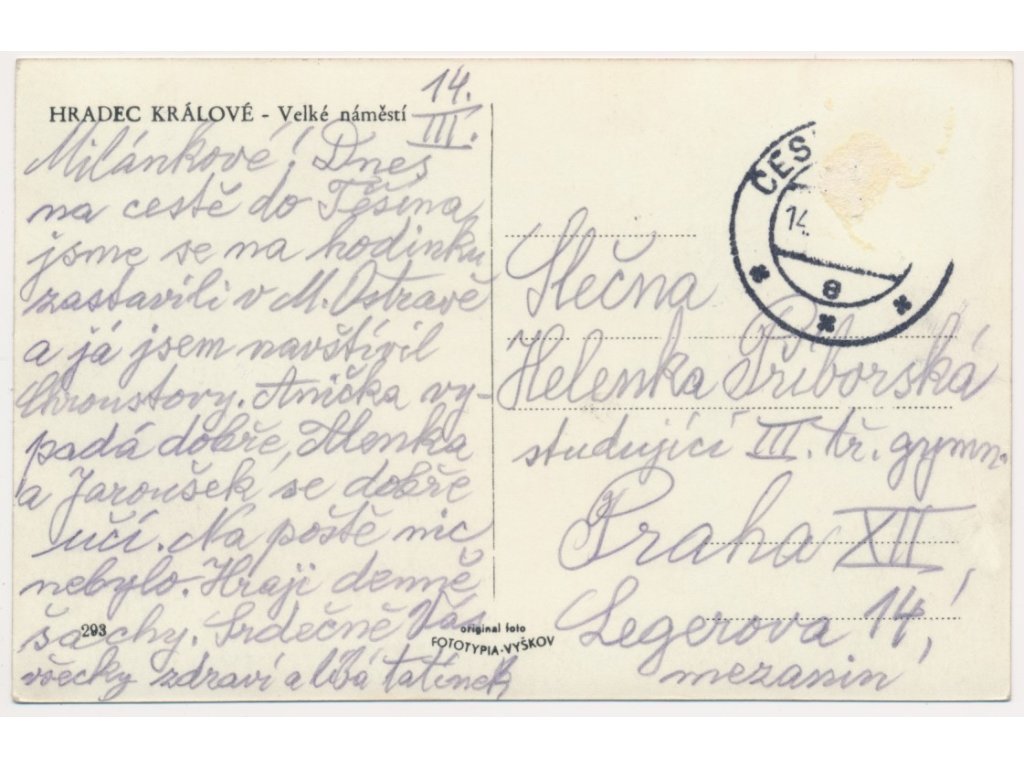 HRADEC KRÁLOVÉ - Velké náměstí
14.
III.
Milánkové! Dnes
na cestě do Těšína
jsme se na hodinku
zastavili v M. Ostravě
a já jsem navštívil
Chroustovy. Anička vy-
padá dobře, Alenka
a Jaroušek se dobře
učí. Na poště nic
nebylo. Hraji denně
šachy. Srdečně Vás
všecky zdraví a líbá tatínek
293
original foto
FOTOTYPIA-VYŠKOV
ČES
14.
a
Slečna
Helenka Příborská
studující III. tř. gymn.
Praha XII,
Legerova 14,
mezanin